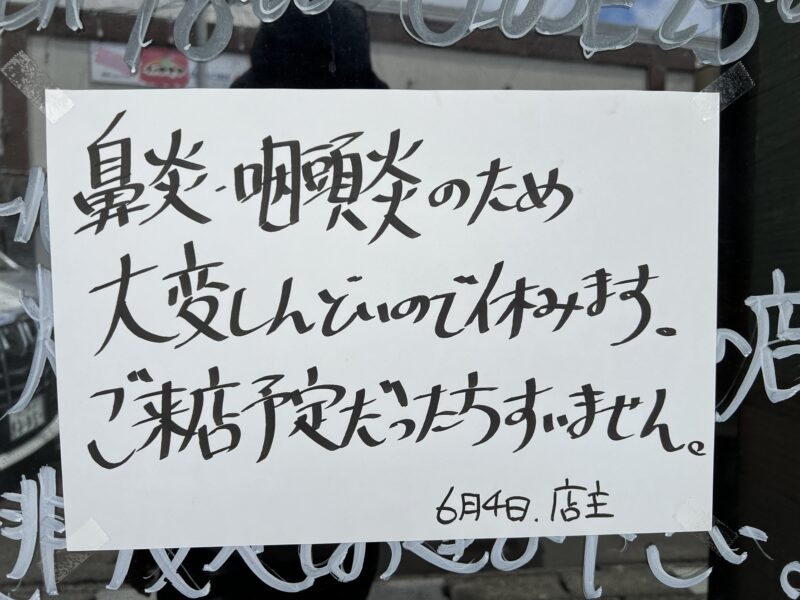 鼻炎・咽頭炎のため
大変しんどいので休みます。
ご来店予定だったらすいません。
6月4日.店主